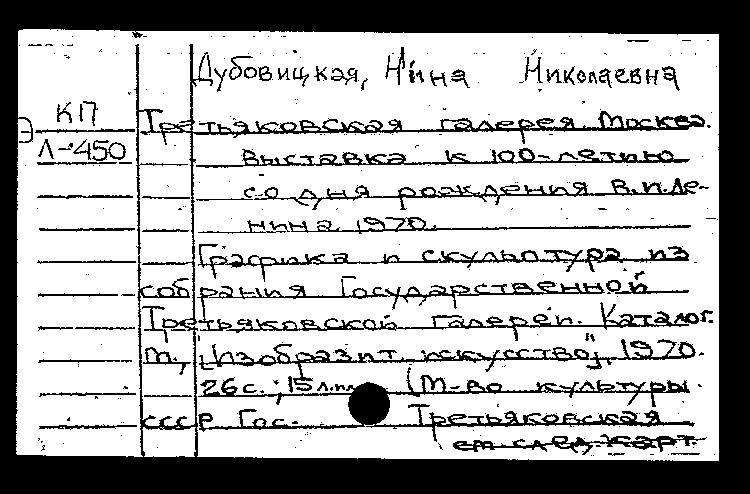 Дубовицкая, Нина Николаевна
КП Третьяковская галерея. Москва.
Л-450 выставка к 100-летию
со дня рождения В.И.Ле-
нина. 1970.
Графика и скульптура из
собрания Государственной
Третьяковской галереи. Каталог.
М., "Изобразит. искусство", 1970.
26с.; 15л.ил. (М-во культуры
СССР Гос. Третьяковская
см след. карт.